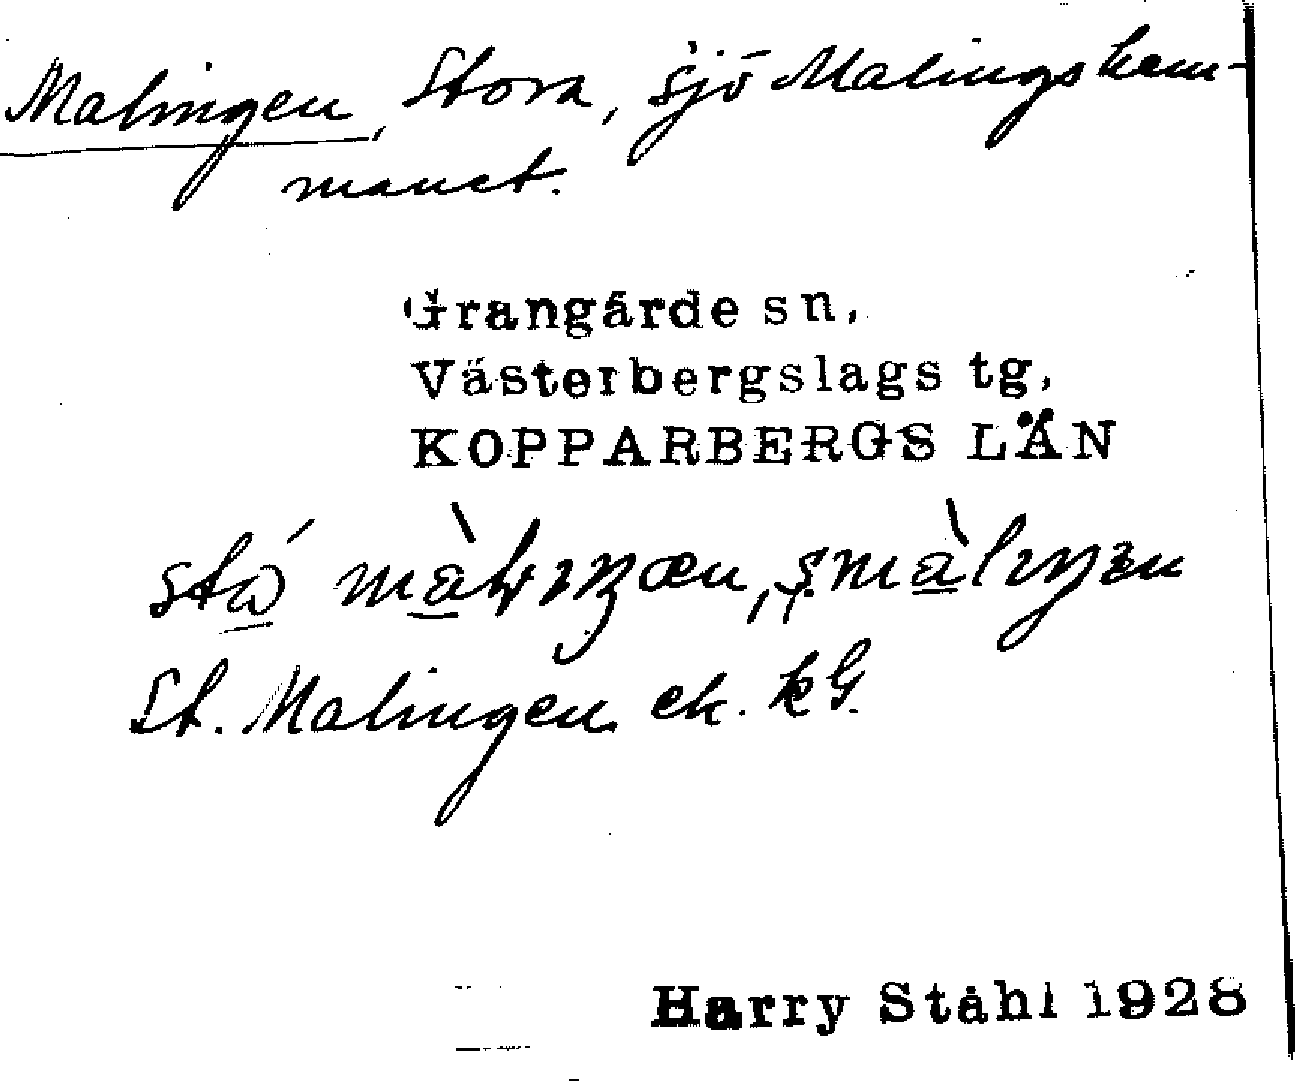 Malingen, Stora, sjö Malingshem-
manet.
Grangärde sn,
Västerbergslags tg,
KOPPARBERGS LÄN
St. Malingen ek. kG.
Harry Ståhl 1928